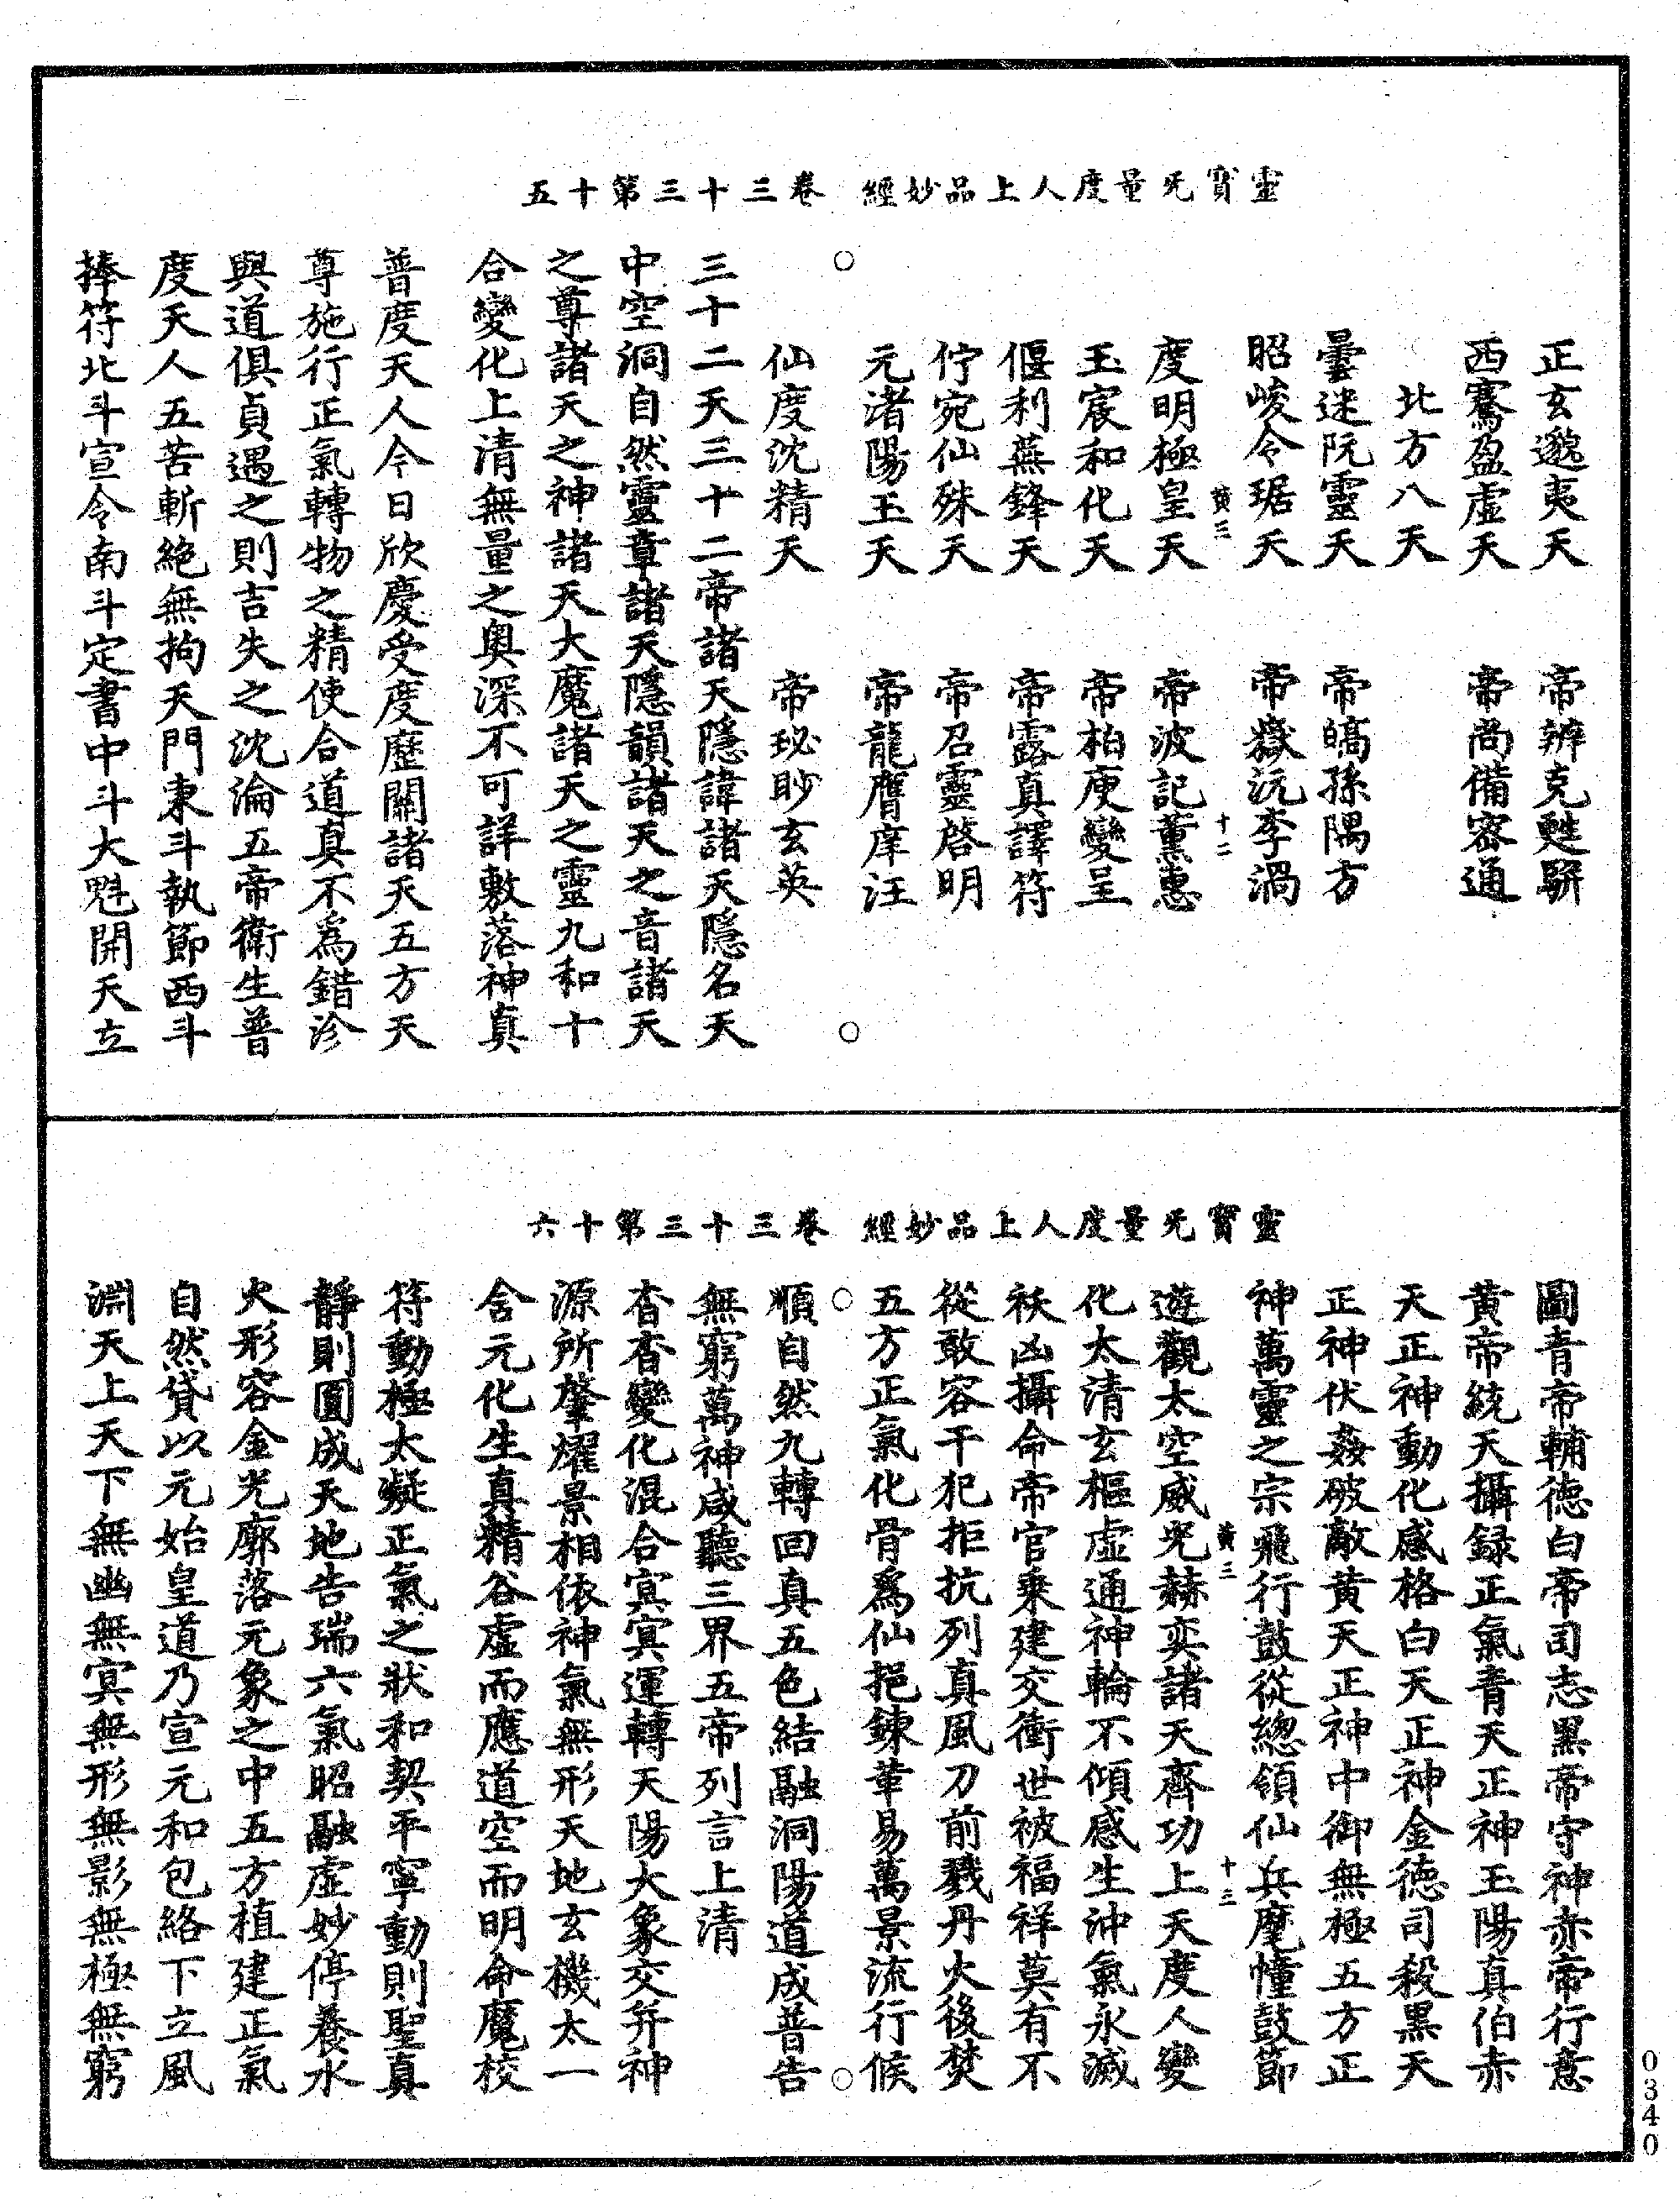 靈寶无量度人上品妙經　卷三十三第十五
正玄邈夷天　帝辨克甦騈
西騫盈虛天　帝尚備密通
北方八天
曇迷阮靈天　帝皜孫隅方
昭峻令琚天　帝嶽沅李渦
黃三　十二
度明極皇天　帝波記薰惠
玉宸和化天　帝柏庾變呈
偃利蕪鋒天　帝露真譯符
佇宛仙殊天　帝召靈啓明
元渚陽玉天　帝龍膺庠汪
仙度沈精天　帝珌眇玄英
三十二天三十二帝諸天隱諱諸天隱名天
中空洞自然靈章諸天隱韻諸天之音諸天
之尊諸天之神諸天大魔諸天之靈九和十
合變化上清無量之奧深不可詳敷落神真
普度天人今日欣慶受度歷關諸天五方天
尊施行正氣轉物之精使合道真不爲錯沴
與道俱貞遇之則吉失之沈淪五帝衛生普
度天人五苦斬絕無拘天門東斗執節西斗
捧符北斗宣令南斗定書中斗大魁開天立
靈寶无量度人上品妙經　卷三十三第十六
圖青帝輔德白帝司志黑帝守神赤帝行意
黃帝統天攝録正氣青天正神玉陽真伯赤
天正神動化感格白天正神金德司殺黑天
正神伏姦破敵黃天正神中御無極五方正
神萬靈之宗飛行鼓從總領仙兵麾幢鼓節
黃三　十三
遊觀太空威光赫奕諸天齊功上天度人變
化太清玄樞虛通神輪不傾感生沖氣永滅
袄凶攝命帝官乘建交衝世被福祥莫有不
從敢容干犯拒抗列真風刀前戮丹火後焚
五方正氣化骨爲仙挹鍊革易萬景流行候
順自然九轉回真五色結融洞陽道成普告
無窮萬神咸聽三界五帝列言上清
杳杳變化混合冥冥運轉天陽大象交并神
源所肇燿景相依神氣無形天地玄機太一
含元化生真精谷虛而應道空而明命魔校
符動極太凝正氣之狀和契平寧動則聖真
靜則圓成天地告瑞六氣昭融虛妙停養水
火形容金光廓落元象之中五方植建正氣
自然貸以元始皇道乃宣元和包絡下立風
淵天上天下無幽無冥無形無影無極無窮
0340